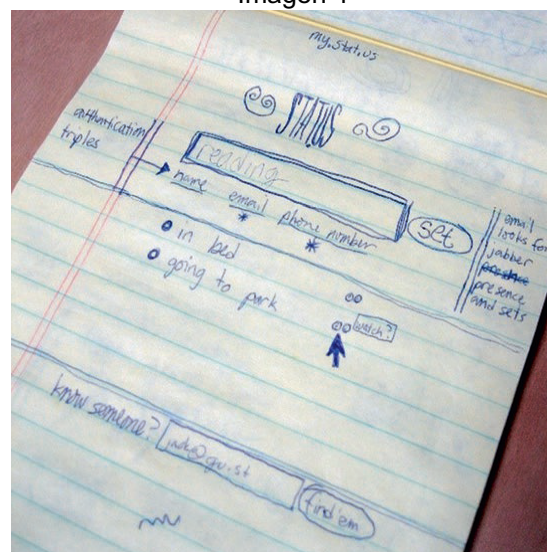 Imagen 1
my.stat.us
STATUS
authentication
triples
reading
name
email
phone number
set
email
looks for
jabber
presence
and sets
in bed
going to park
watch?
know someone?
find'em